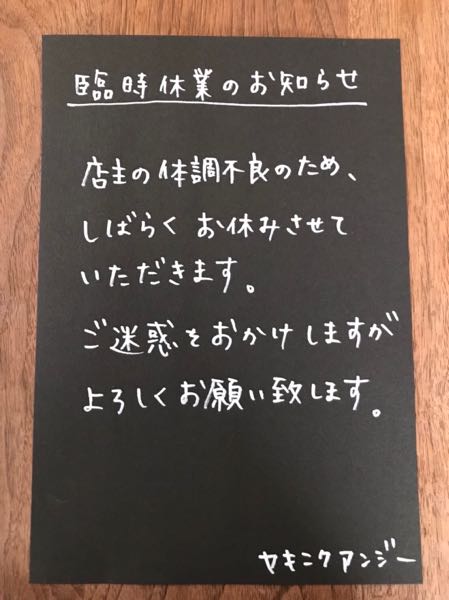 臨時休業のお知らせ
店主の体調不良のため、
しばらくお休みさせて
いただきます。
ご迷惑をおかけしますが
よろしくお願い致します。
ヤキニクアンジー